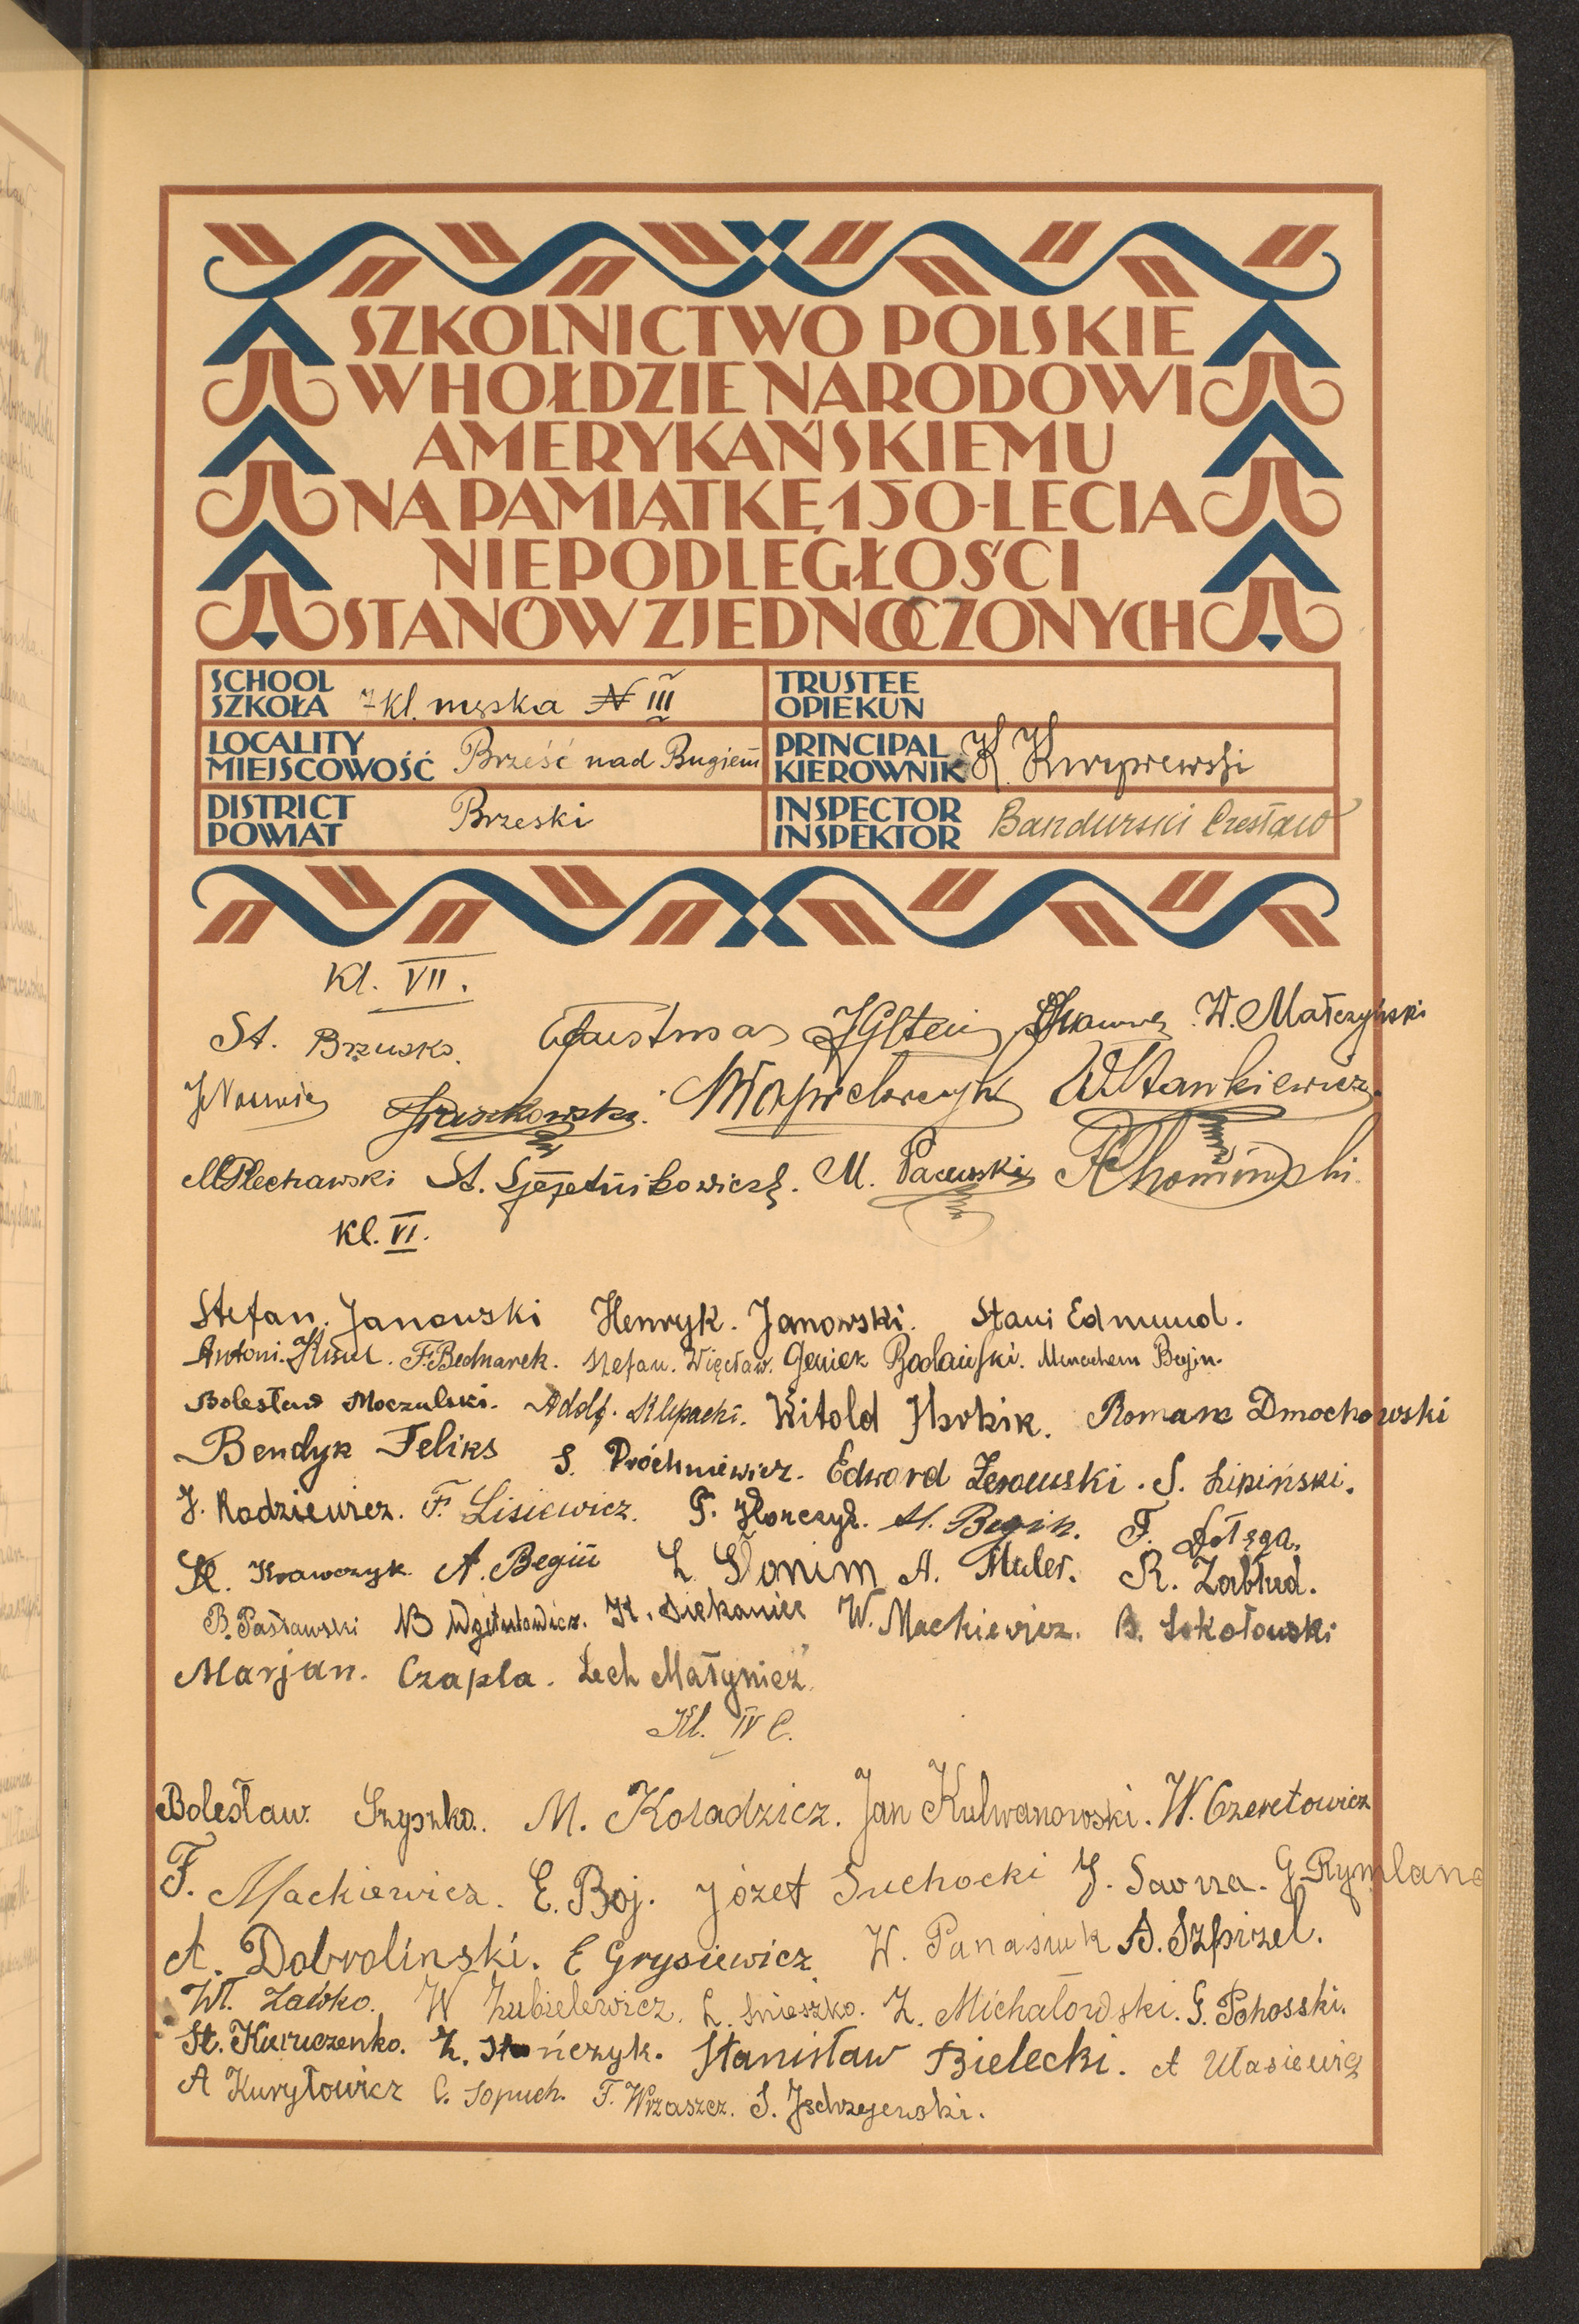 SZKOLNICTWO POLSKIE
W HOŁDZIE NARODOWI
AMERYKAŃSKIEMU
NA PAMIĄTKĘ 150-LECIA
NIEPODLEGŁOŚCI
STANÓW ZJEDNOCZONYCH
SCHOOL
SZKOŁA 7 kl. męska N III
TRUSTEE
OPIEKUN
LOCALITY
MIEJSCOWOŚĆ Brześć nad Bugiem
PRINCIPAL
KIEROWNIK K.
DISTRICT
POWIAT Brzeski
INSPECTOR
INSPEKTOR Bandurski Czesław
Kl. VII.
St. Brzusko. W. Małczyński
Stankiewicz
M Plechawski St. M. Pacewski
Kl. VI.
Stefan. Janowski Henryk. Janowski. Stani Edmund.
Antoni. F. Bednarek. Stefan. Więcław. Geniek Menachem Begin.
Bolesław Moczulski. Adolf. Klepacki. Witold Roman Dmochowski
Bendyk Feliks S. Próchniewicz. Edward S. Lipiński.
J. Radziewicz. F. Lisiewicz. P. M. Begin. F. Dołęga.
K. Krawczyk A. Begin L. Słonim A. Muler. R. Zabłud.
B. Pasławski K. Siekaniec W. Mackiewicz. B. Sokołowski
Marjan. Czapla. Lech Małynicz
Kl. IV C.
Bolesław. Szyszko. M. Koładzicz. Jan Kulwanowski. W. Czeretowicz
F. Mackiewicz. E. Boj. Józef Suchocki J. G. Rymland
A. Dobroliński. E Grysiewicz. W. Panasiuk A. Szpizel.
Wł. Zawko. W Zubielewicz. L. Śnieszko. Z. Michałowski. G. Pohosski.
St. Kuruczenko. Z. Stańczyk. Stanisław Bielecki. A Ułasiewicz
A Kuryłowicz C. Sopuch. F. Wrzaszcz. S. Jędrzejewski.